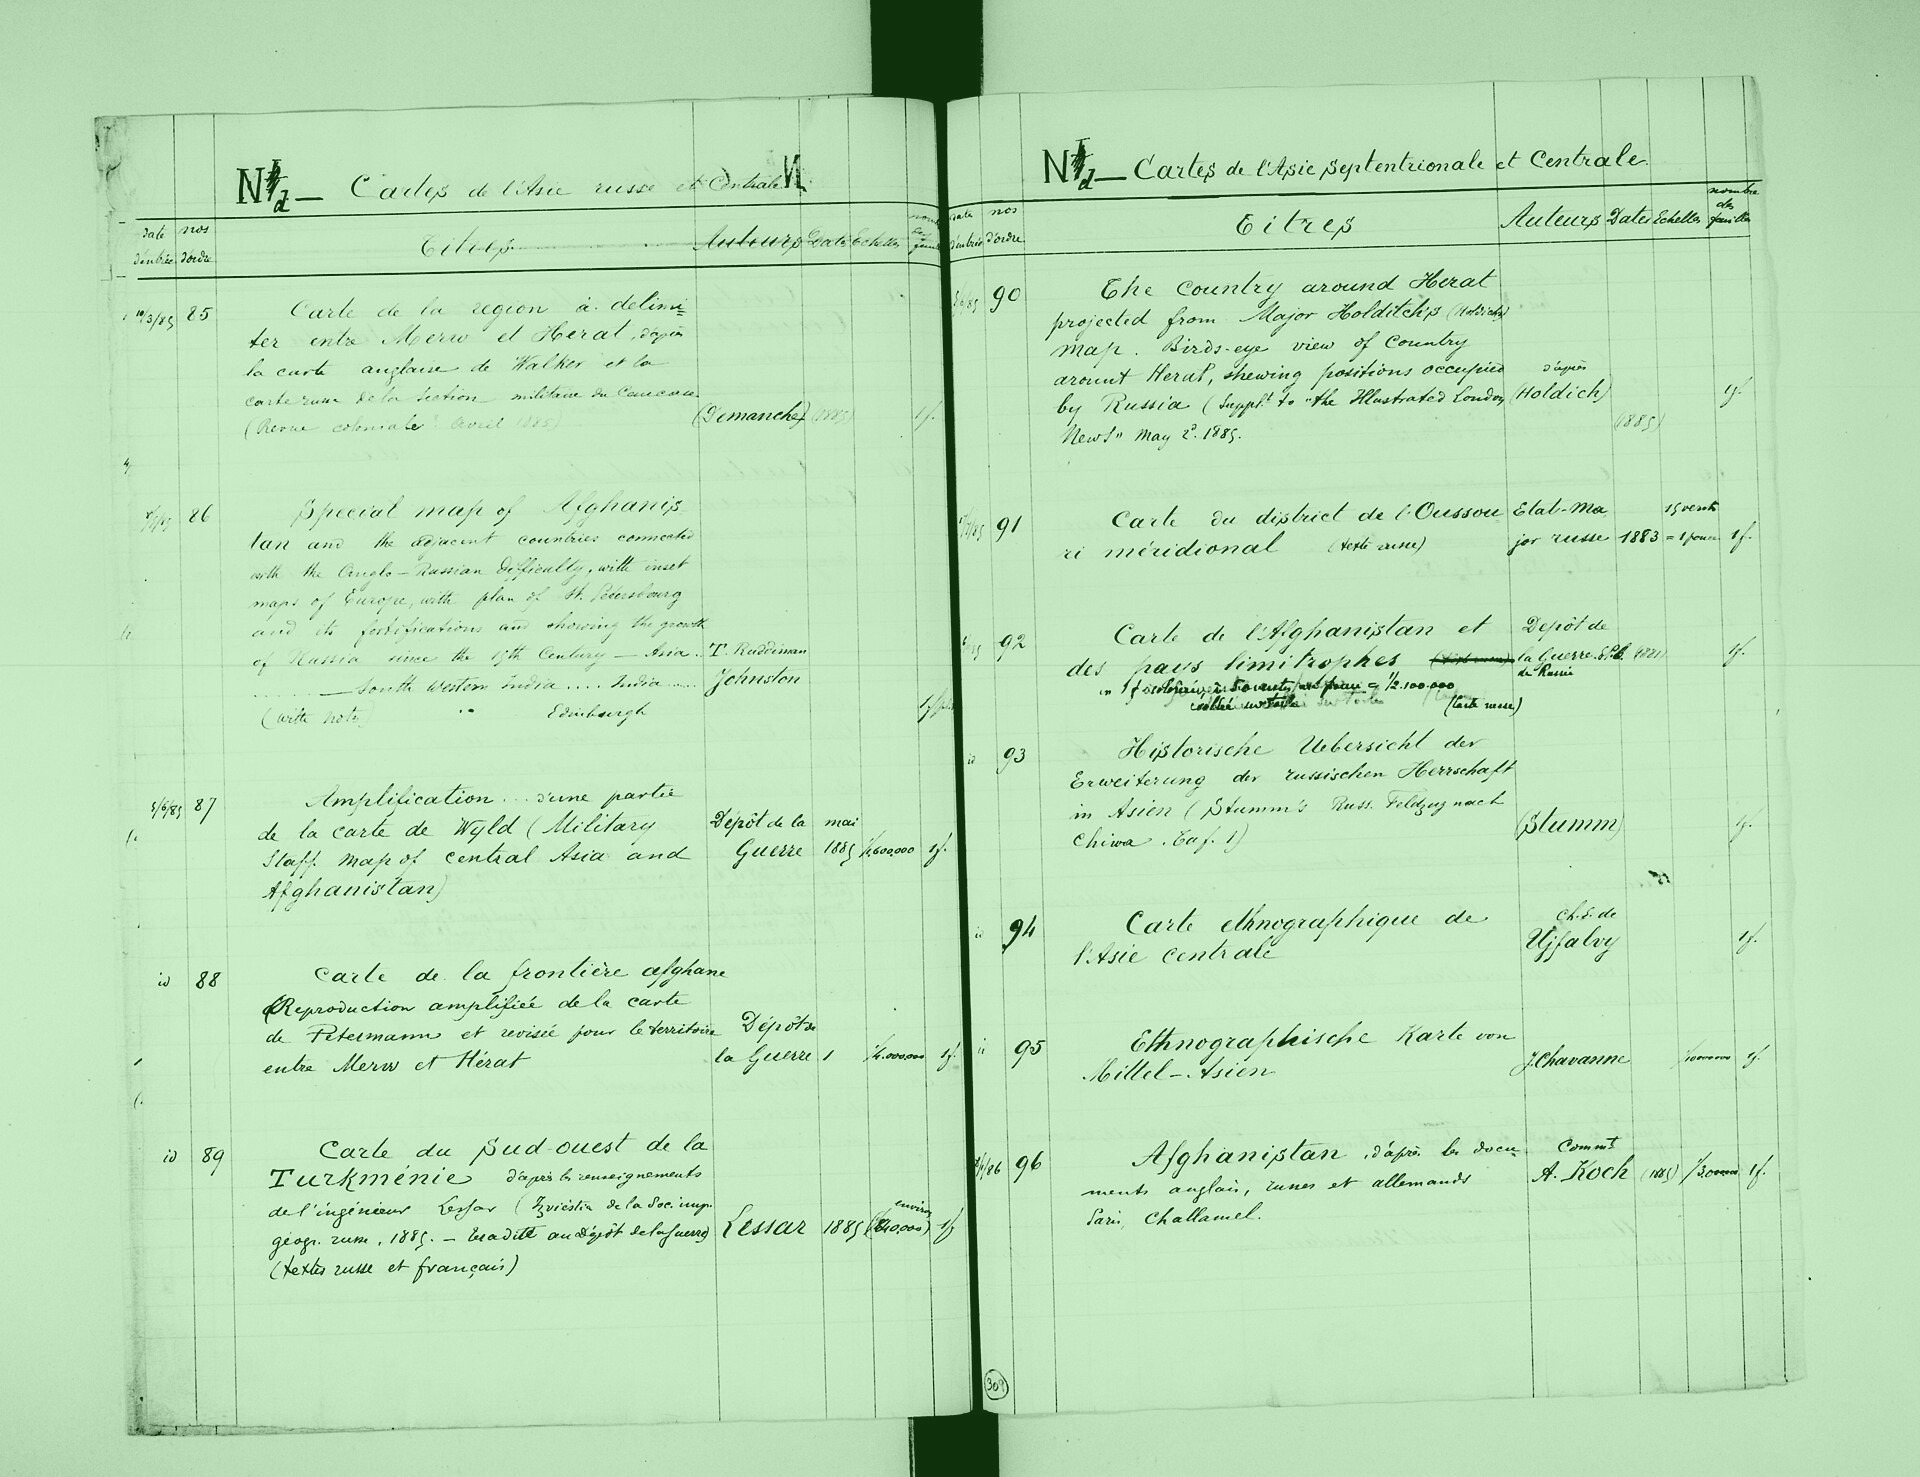 Nd — Cartes de l'Asie russe et Centrale N
Date d'entrée
nos d'ordre
Titres
Auteurs
Dates
Echelles
10/3/85 85
Carte de la région à délimi=
ter entre Merw et Herat, d'après
la carte anglaise de Walker et la
carte russe de la section militaire du Caucase
(Revue coloniale avril 1885)
(Demanche) (1885) 1f.
86
Special map of Afghanis
tan and the adjacent countries connected
with the Anglo-Russian difficulty, with inset
maps of Europe, with plan of St. Petersbourg
and its fortifications and showing the growth
of Russia since the 19th Century — Asia ..
— South Western India .... India ....
(with note) " Edinburgh
T. Ruddiman
Johnston
5/6/85 87
Amplification ... d'une partie
de la carte de Wyld (Military
Staff map of central Asia and
Afghanistan)
Dépôt de la
Guerre
mai
1885
1/1,600,000 1f.
id 88
Carte de la frontière afghane
(Reproduction amplifiée de la carte
de Petermann et revisée pour le territoire
entre Merw et Hérat
Dépôt de
la Guerre 1 1f.
id 89
Carte du Sud-ouest de la
Turkménie d'après les renseignements
de l'ingénieur Lessar (Izviéstia de la Soc. imp.
géogr. russe, 1885. — traduite au Dépôt de la Guerre)
(textes russe et français)
Lessar 1885 environ
(840,000) 1f
Nd — Cartes de l'Asie Septentrionale et Centrale
Date d'entrée
nos d'ordre
Titres
Auteurs
Dates
Echelles
nombre
des
feuilles
90
The country around Herat
projected from Major Holditch's (Holdich's)
map. Birds-eye view of Country
arount Herat, shewing positions occupied
by Russia (Supplt to "the Illustrated London
News" May 2d. 1885.
d'après
(Holdich)
(1885)
1f.
91
Carte du district de l'Oussou
ri méridional (texte russe)
Etat-Ma
jor russe 1883
15 verstes
= 1 pouce 1f.
92
Carte de l'Afghanistan et
des pays limitrophes
= 1/2.100.000
collée sur toile (texte russe)
Depôt de
la Guerre
de Russie
1f.
id 93
Historische Uebersicht der
Erweiterung der russischen Herrschaft
in Asien (Stumm's Russ. Feldzug nach
Chiwa. Taf. 1)
(Stumm) 1f.
id 94
Carte ethnographique de
l'Asie centrale
Ch. E. de
Ujfalvy 1f.
id 95
Ethnographische Karte von
Mittel-Asien
J. Chavanne 1f.
96
Afghanistan, d'après les docu-
ments anglais, russes et allemands
Paris, Challamel.
Commt
A. Koch (1885) 1f.
309